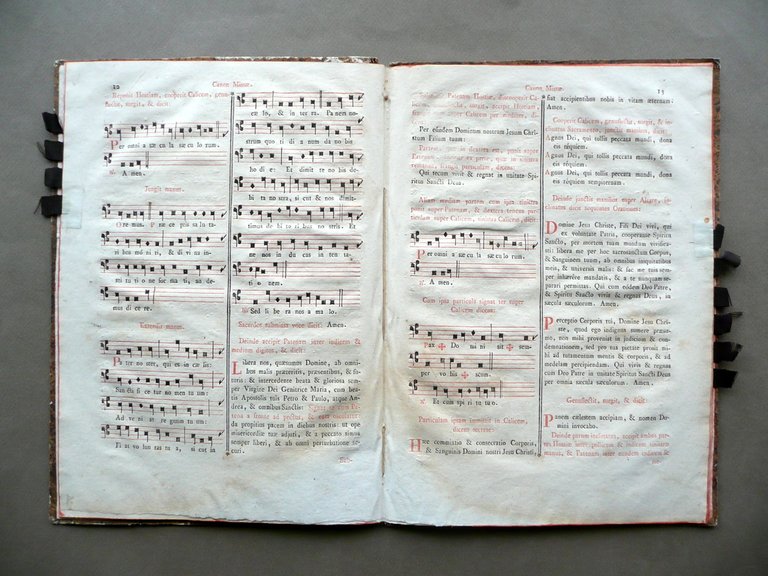 22
Canon Missæ.
Reponit Hostiam, cooperit Calicem, genu-
flectit, surgit, & dicit:
Per omni a sæ cu la sæ cu lo rum.
A men.
Jungit manus.
Ore mus. Præ cep tis sa lu ta-
ri bus mó ni ti, & di vi na in-
sti tu ti o ne for ma ti, au de-
mus di ce re.
Extendit manus.
Pa ter nos ter, qui es in cæ lis:
Sanc ti fi ce tur no men tu um:
Ad ve ni at re gnum tu um:
Fi at vo lun tas tu a, si cut in
cæ lo, & in ter ra. Pa nem no-
strum quo ti di a num da no bis
ho di e: Et dimit te no bis de-
bi ta no stra, si cut & nos dimit-
timus de bi to ri bus no stris. Et
ne nos in du cas in ten ta-
ti o nem.
Sed li be ra nos a ma lo.
Sacerdos submissa voce dicit: Amen.
Deinde accipit Patenam inter indicem &
medium digitos, & dicit:
Libera nos, quæsumus Domine, ab omni-
bus malis præteritis, præsentibus, & fu-
turis: & intercedente beata & gloriosa sem-
per Virgine Dei Genitrice Maria, cum bea-
tis Apostolis tuis Petro & Paulo, atque An-
drea, & omnibus Sanctis:
da propitius pacem in diebus nostris: ut ope
misericordiæ tuæ adjuti, & a peccato simus
semper liberi, & ab omni perturbatione se-
curi.
Canon Missæ.
23
Per eúndem Dominum nostrum Jesum Chri-
stum Filium tuum.
Qui tecum vivit & regnat in unitate Spiritus
Sancti Deus.
Aliam mediam partem cum ipsa sinistra
ponit super Patenam, & dextera tenens par-
ticulam super Calicem, sinistra Calicem, dicit:
Per omni a sæ cu la sæ cu lo rum.
A men.
Cum ipsa particula signat ter super
Calicem dicens:
Pax ✠ Do mi ni sit ✠ sem-
per vo bis ✠ cum.
Et cum spi ri tu tu o.
Particulam ipsam immittit in Calicem,
dicens secrete:
Hæc commixtio & consecratio Corporis,
& Sanguinis Domini nostri Jesu Christi,
fiat accipientibus nobis in vitam æternam:
Amen.
Cooperit Calicem, genuflectit, surgit, & in-
clinatus Sacramento, junctis manibus, dicit:
Agnus Dei, qui tollis peccata mundi, dona
eis réquiem.
Agnus Dei, qui tollis peccata mundi, dona
eis réquiem.
Agnus Dei, qui tollis peccata mundi, dona
eis réquiem sempiternam.
Deinde junctis manibus super Altare, in-
clinatus dicit sequentes Orationes:
Domine Jesu Christe, Fili Dei vivi, qui
ex voluntate Patris, cooperante Spiritu
Sancto, per mortem tuam mundum vivifica-
sti: libera me per hoc sacrosanctum Corpus,
& Sanguinem tuum, ab omnibus iniquitatibus
meis, & universis malis: & fac me tuis sem-
per inhærére mandatis, & a te nunquam se-
parari permittas. Qui cum eodem Deo Patre,
& Spiritu Sancto vivis & regnas Deus, in
sæcula sæculorum. Amen.
Perceptio Corporis tui, Domine Jesu Chri-
ste, quod ego indignus sumere præsu-
mo, non mihi proveniat in judicium & con-
demnationem, sed pro tua pietate prosit mi-
hi ad tutamentum mentis & corporis, & ad
medelam percipiendam. Qui vivis & regnas
cum Deo Patre in unitate Spiritus Sancti Deus
per omnia sæcula sæculorum. Amen.
Genuflectit, surgit, & dicit:
Panem cælestem accipiam, & nomen Do-
mini invocabo.